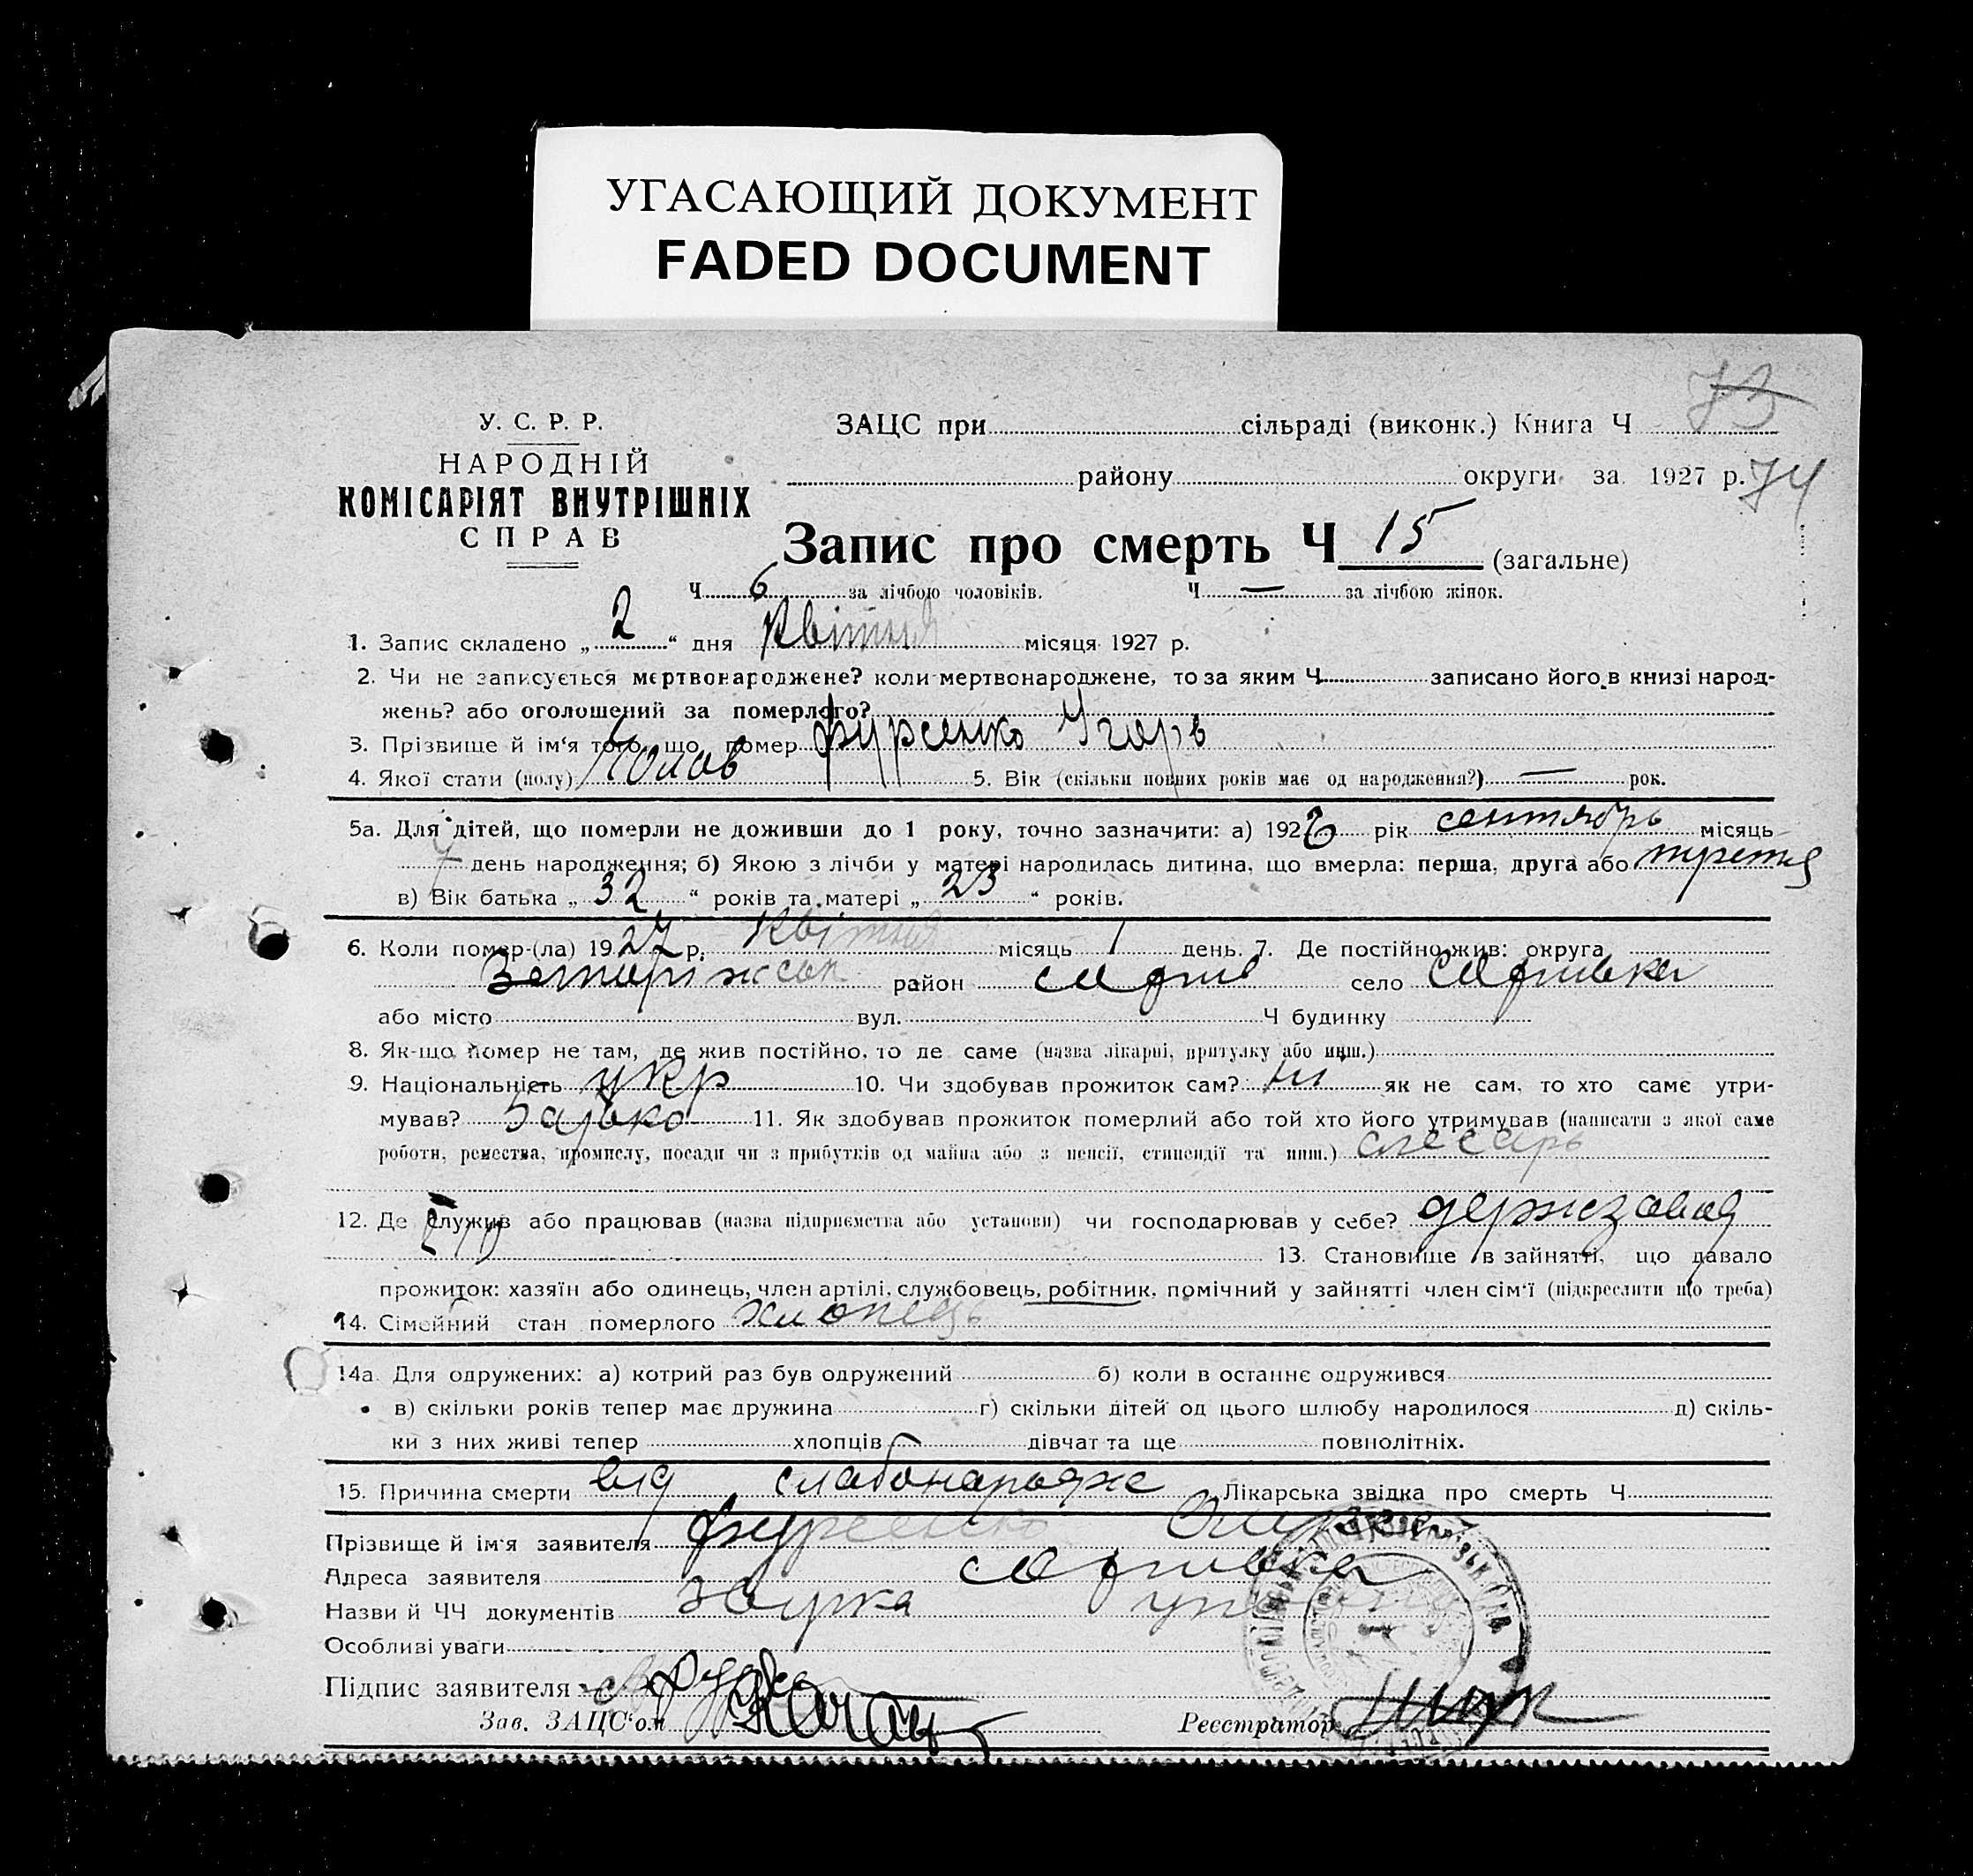 УГАСАЮЩИЙ ДОКУМЕНТ
FADED DOCUMENT
73
У. С. Р. Р.
ЗАЦС при сільраді (виконк.) Книга Ч
НАРОДНІЙ
району округи за 1927 р. 74
КОМІСАРІЯТ ВНУТРІШНІХ
СПРАВ
Запис про смерть Ч 15 (загальне)
Ч 6 за лічбою чоловіків. Ч — за лічбою жінок.
1. Запис складено „ 2 “ дня Квітня місяця 1927 р.
2. Чи не записується мертвонароджене? коли мертвонароджене, то за яким Ч записано його в книзі народ-
жень? або оголошений за померлого?
3. Прізвище й ім'я того, що помер Фурсенко Ігорь
4. Якої стати (полу) 5. Вік (скільки повних років має од народження?) — рок.
5а. Для дітей, що померли не доживши до 1 року, точно зазначити: а) 1926 рік сентябрь місяць
7 день народження; б) Якою з лічби у матері народилась дитина, що вмерла: перша, друга або третя
в) Вік батька „ 32 “ років та матері „ 23 “ років.
6. Коли помер-(ла) 1927 р. Квітня місяць 1 день. 7. Де постійно жив: округа
район село
або місто вул. Ч будинку
8. Як-що помер не там, де жив постійно, то де саме (назва лікарні, притулку або инш.)
9. Національність укр 10. Чи здобував прожиток сам? ні як не сам, то хто саме утри-
мував? Батько 11. Як здобував прожиток померлий або той хто його утримував (написати з якої саме
роботи, ремества, промислу, посади чи з прибутків од майна або з пенсії, стипендії та инш.) слесарь
12. Де служив або працював (назва підприємства або установи) чи господарював у себе? держзавод
13. Становище в зайнятті, що давало
прожиток: хазяїн або одинець, член артілі, службовець, робітник, помічний у зайнятті член сім'ї (підкреслити що треба)
14. Сімейний стан померлого хлопець
14а. Для одружених: а) котрий раз був одружений б) коли в останнє одружився
в) скільки років тепер має дружина г) скільки дітей од цього шлюбу народилося д) скіль-
ки з них живі тепер хлопців дівчат та ще повнолітніх.
15. Причина смерти від Лікарська звідка про смерть Ч
Прізвище й ім'я заявителя Фурсенко
Адреса заявителя
Назви й ЧЧ документів
Особливі уваги
Підпис заявителя
Зав. ЗАЦС'ом Реєстратор